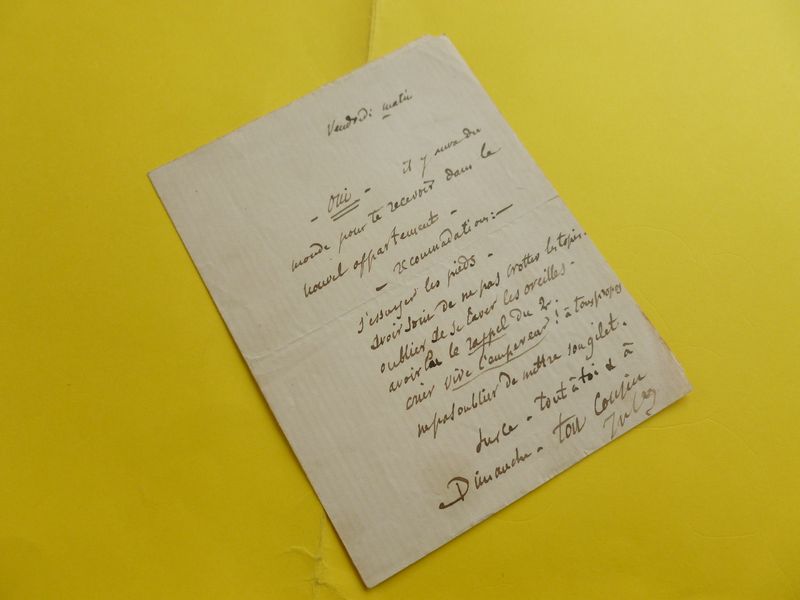 Vendredi matin
- oui - il y aura du
monde pour te recevoir dans le
nouvel appartement -
- recommadations : -
s'essuyer les pieds -
avoir soin de ne pas crotter les tapis.
oublier de se laver les oreilles -
avoir lu le rappel du 2.
crier vive l'empereur ! à tous propos
ne pas oublier de mettre son gilet.
Sur ce - tout à toi & à
Dimanche - ton cousin
Jules